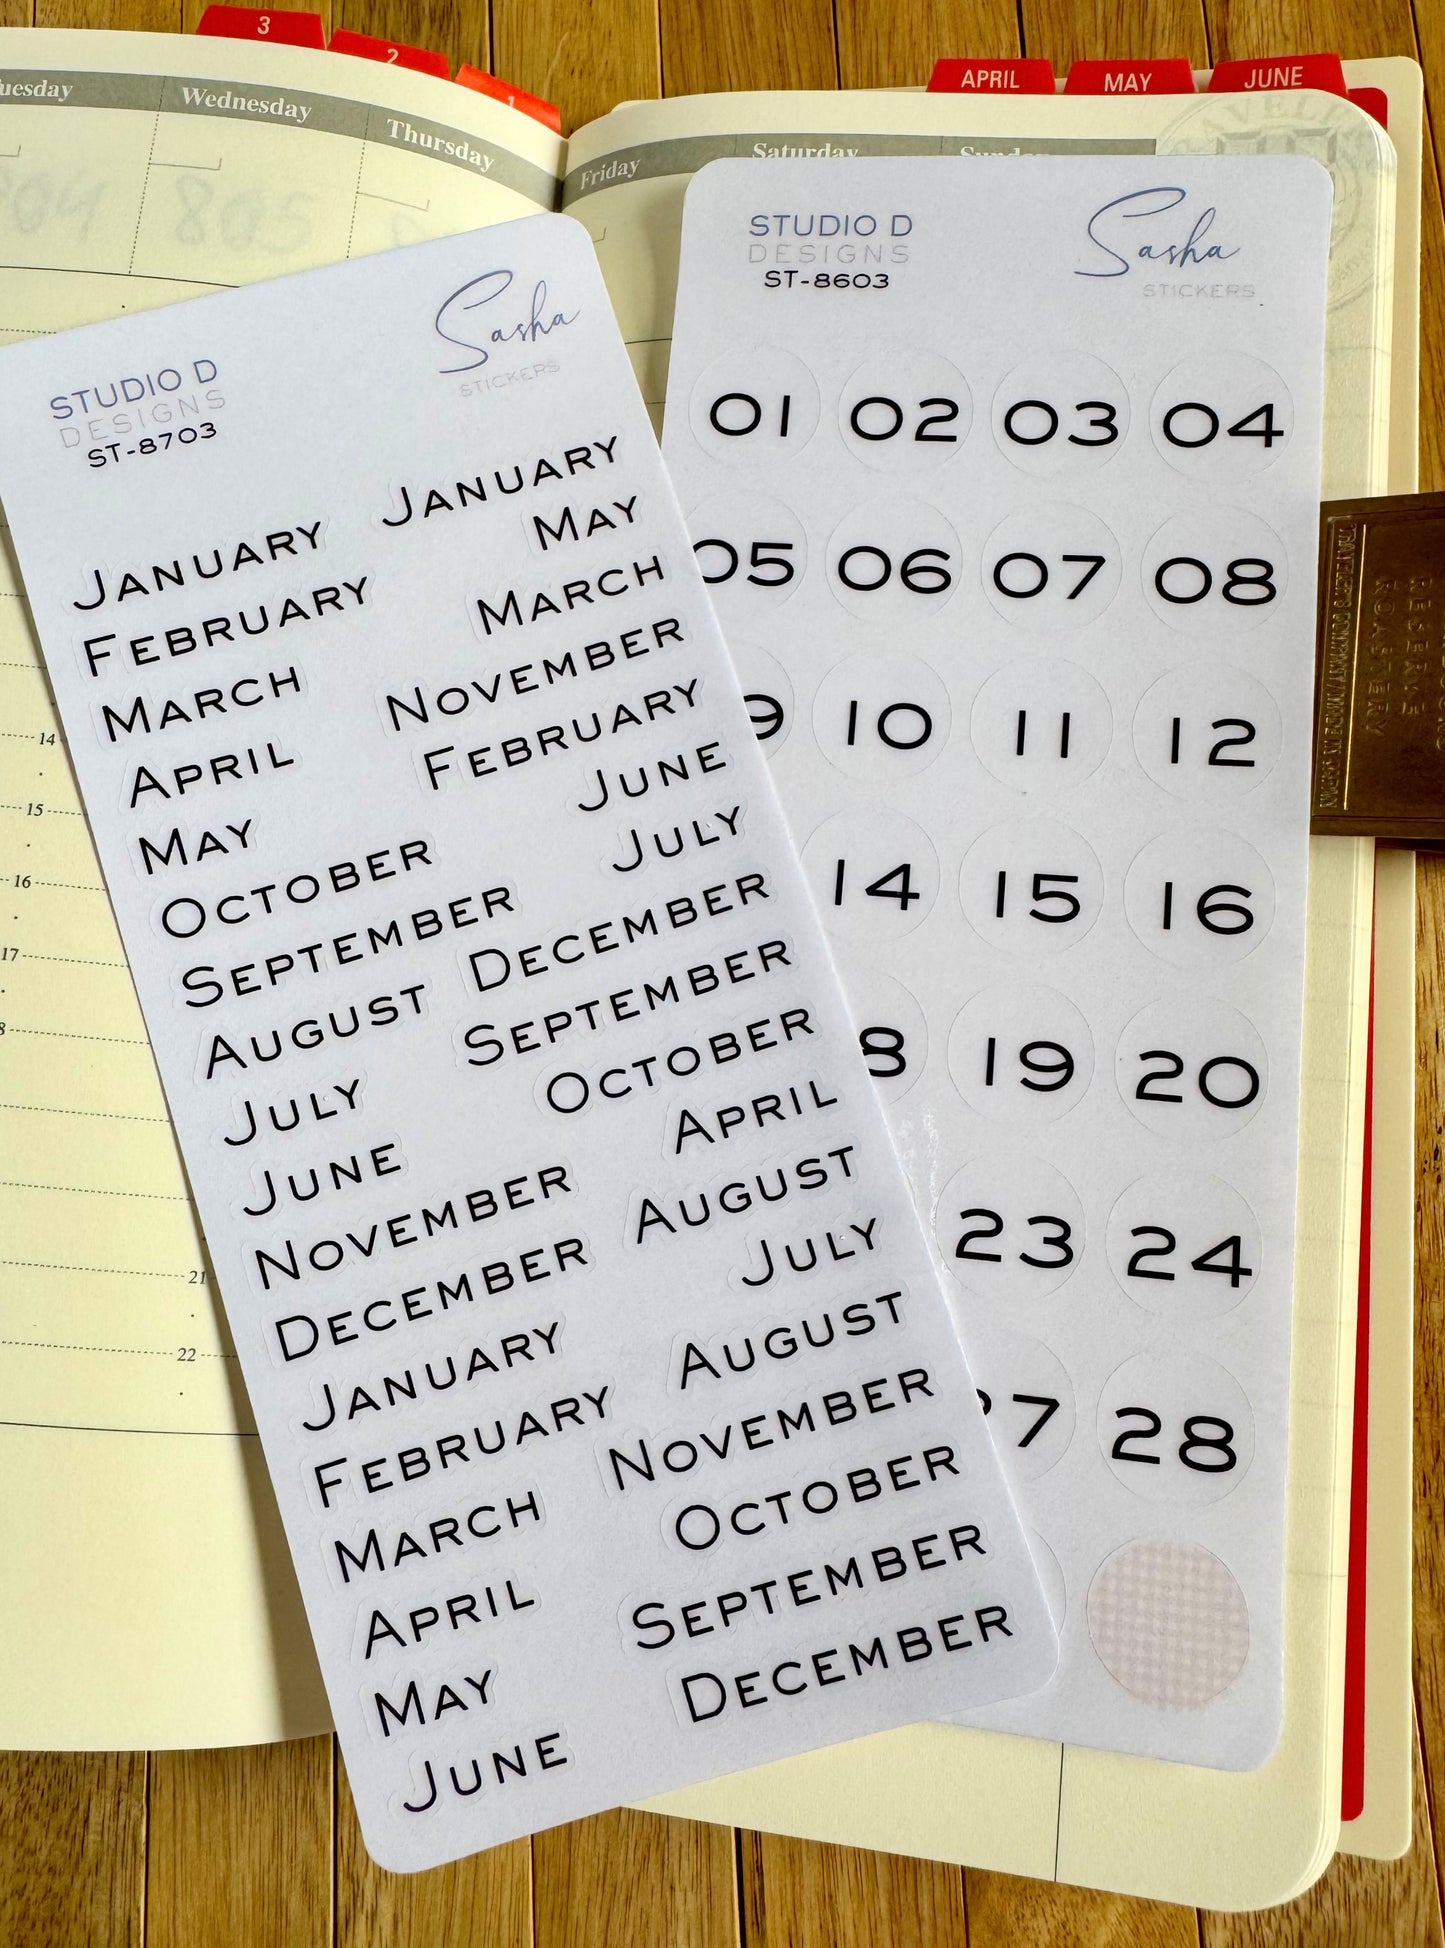 3
2
1
APRIL
MAY
JUNE
Wednesday
Thursday
Friday
Saturday
STUDIO D
DESIGNS
ST-8703
Sasha
STICKERS
JANUARY
FEBRUARY
MARCH
APRIL
MAY
OCTOBER
SEPTEMBER
AUGUST
JULY
JUNE
NOVEMBER
DECEMBER
JANUARY
FEBRUARY
MARCH
APRIL
MAY
JUNE
JANUARY
MAY
MARCH
NOVEMBER
FEBRUARY
JUNE
JULY
DECEMBER
SEPTEMBER
OCTOBER
APRIL
AUGUST
JULY
AUGUST
NOVEMBER
OCTOBER
SEPTEMBER
DECEMBER
STUDIO D
DESIGNS
ST-8603
Sasha
STICKERS
01 02 03 04
05 06 07 08
10 11 12
14 15 16
19 20
23 24
28
14
15
16
17
21
22
RESERVE
ROASTERY